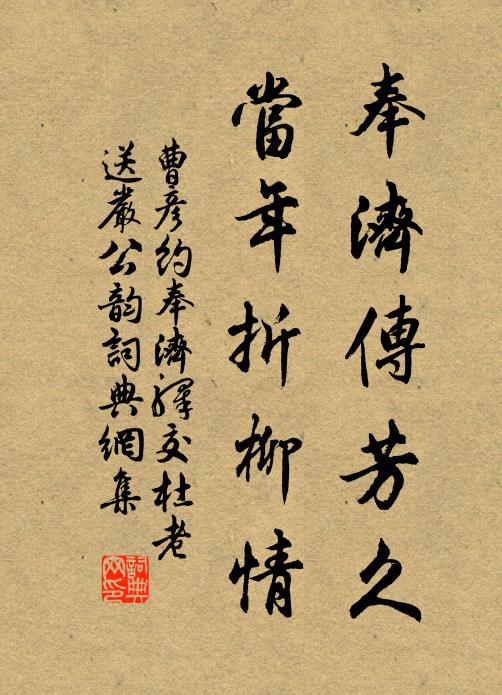 奉濟傳芳久
當年折柳情
曹彦約奉濟驛交杜老
送嚴公韵詞典網集
詞典网印